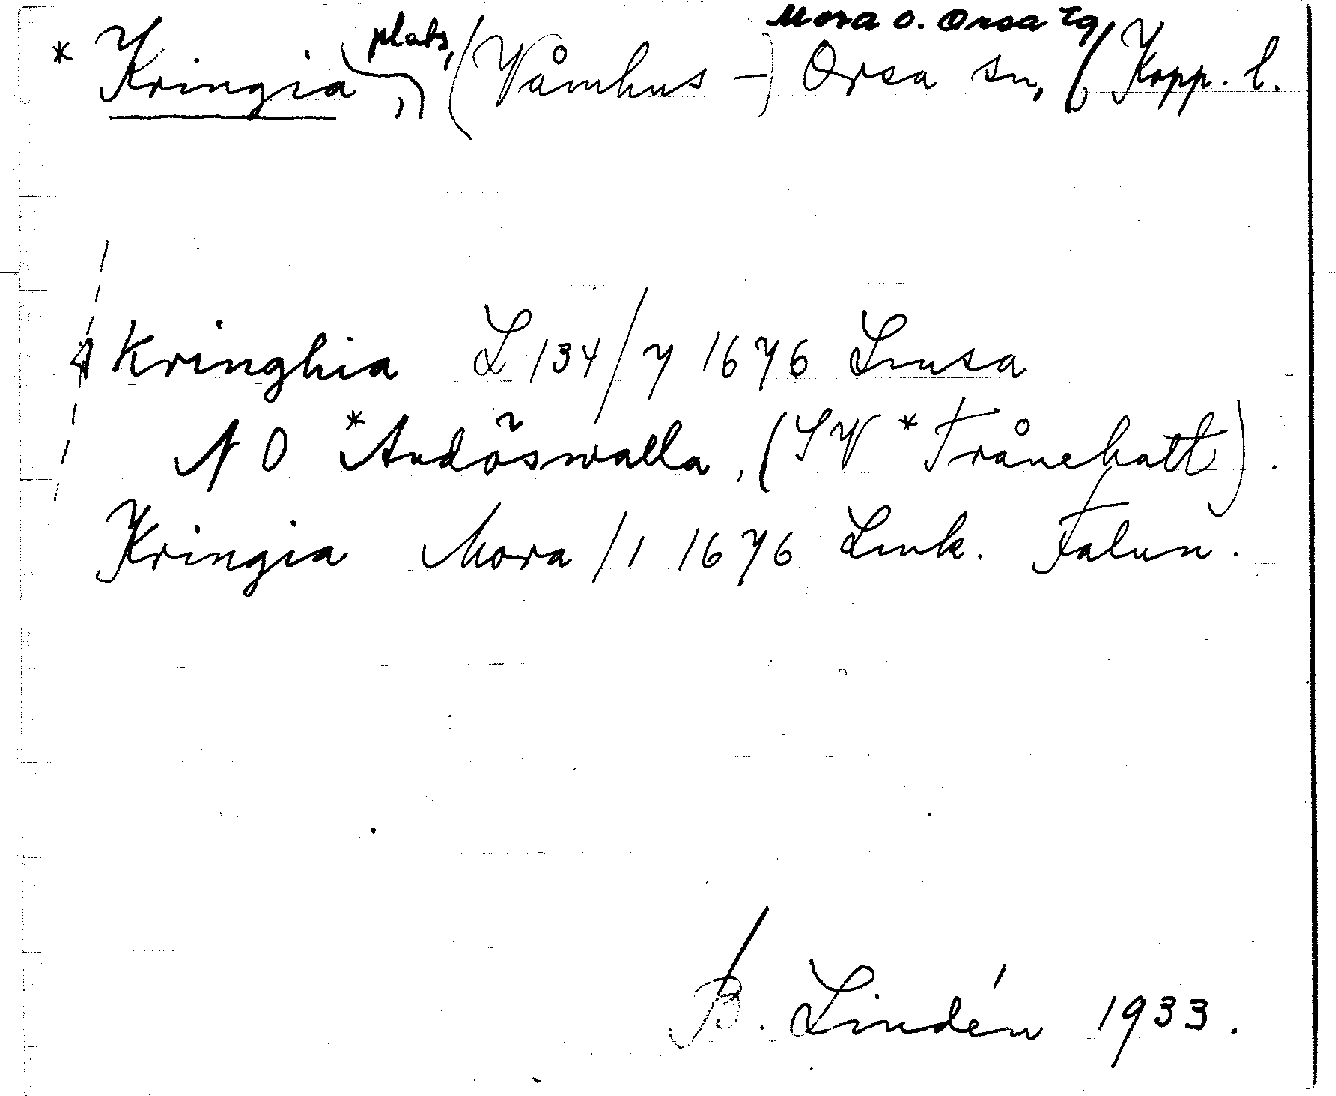 Mora o. Orsa tg
* Kringia, plats, (Våmhus –) Orsa sn, Kopp. l.
Kringhia L 134/7 1676 Lmsa
NO *Andöswalla, (SV *Frånehatt).
Kringia Mora /1 1676 Lmk. Falun.
B. Lindén 1933.